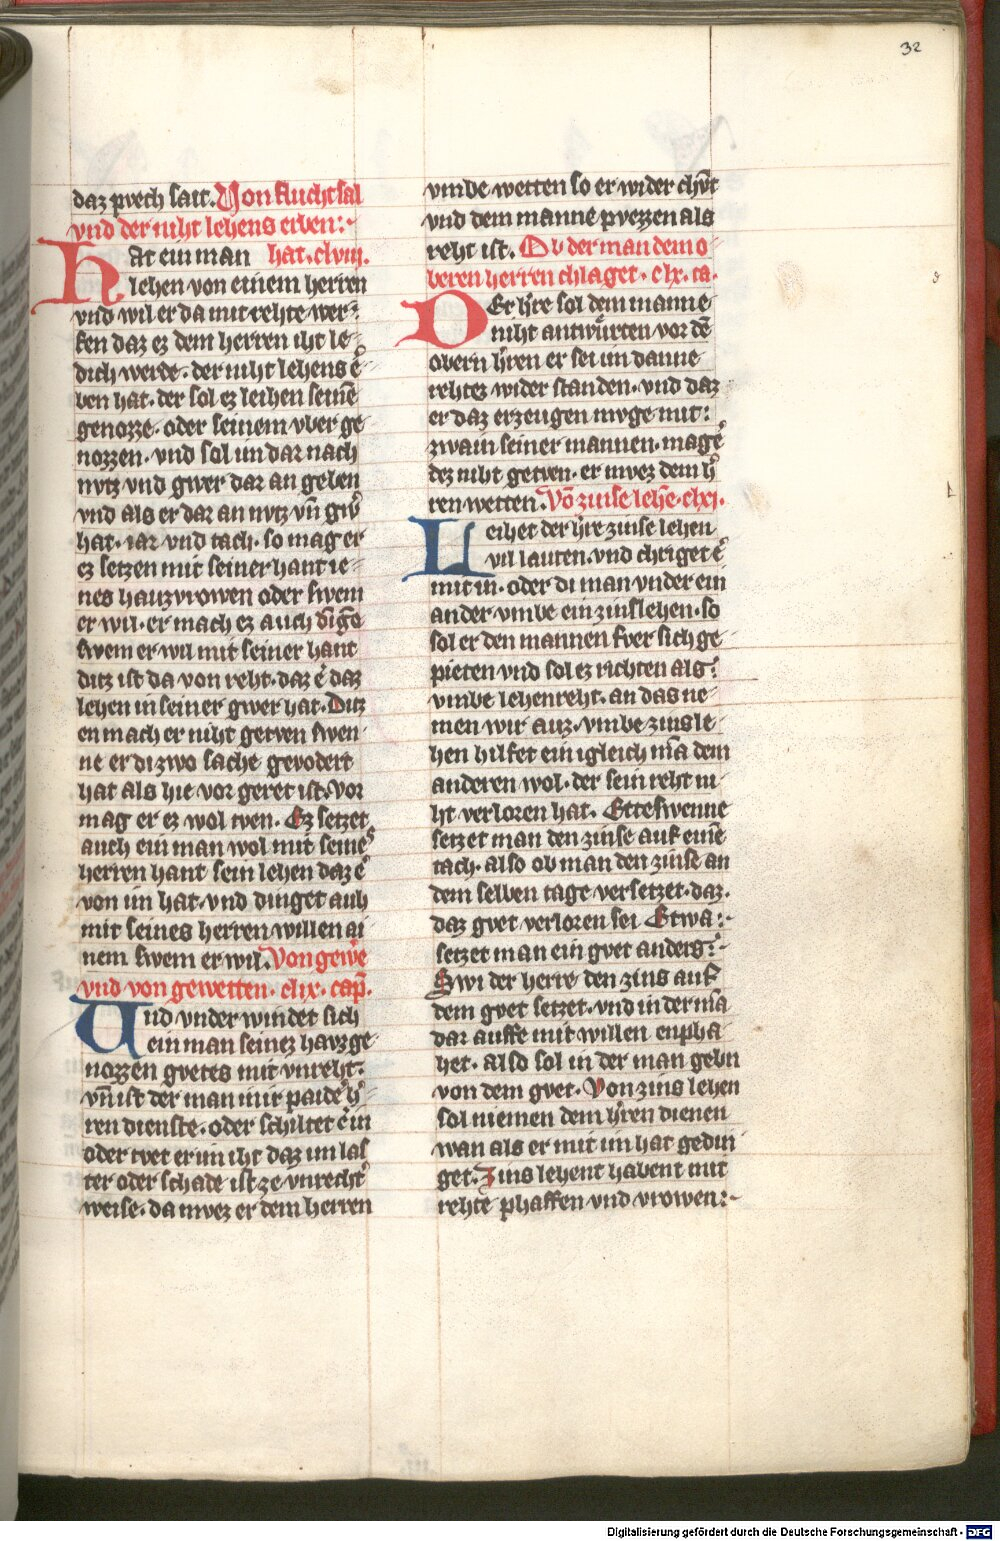 32
daz pvech sait. Von fluchtsal
vnd der niht lehens erben:·
Hat ein man hat. clviij.
lehen von einem herren
vnd wil er da mit rehte wer-
fen daz ez dem herren iht le-
dich werde. der niht lehens er
ben hat. der sol ez leihen seinē
genozze. oder seinem vber ge
nozzen. vnd sol im dar nach
nvtz vnd gwer dar an geben
vnd als er dar an nvtz vn̄ gwͤ
hat. iar vnd tach. so mag er
ez setzen mit seiner hant ie-
nes hauzvrowen oder swem
er wil. er mach ez auch
swem er wil mit seiner hant
ditz ist da von reht. daz eͤ daz
lehen in seiner gwer hat. Ditz
en mach er niht getven swen
ne er di zwo sache gevodert
hat als hie vor geret ist. vor
mag er ez wol tven. Ez setzet
auch ein man wol mit seines
herren hant sein lehen daz eͤ
von im hat. vnd dinget auh
mit seines herren willen ai
nem swem er wil. Von gewͤe
vnd von gewetten. clix. cap.
Vnd vnder windet sich
ein man seinez havzge
nozzen gvetes mit vnreht.
vn̄ ist der man mit paideͤ hͤ
ren dienste. oder schiltet eͤ in
oder tvet er im iht daz im las
ter oder schade ist ze vnrechtͤ
weise. da mvez er dem herren
vmbe wetten so er wider chvͤt
vnd dem manne pvezzen als
reht ist. Ob der man dem o
beren herren chlaget. clx. ca.
Der hͤre sol dem manne
niht antwurten vor dē
obern hͤren er sei im danne
rehtes wider standen. vnd daz
er daz erzeugen mvge mit:
zwain seiner mannen. mag eͤ
dez niht getven. er mvez dem hͤ
ren wetten. Vō zinse lehē. clxj.
Leihet der hͤre zinse lehen
vil lauten. vnd chriget eͤ
mit in. oder di man vnder ein
ander vmbe ein zinslehen. so
sol er den mannen fver sich ge
pieten vnd sol ez richten als:
vmbe lehenreht. an das ne
men wir auz. vmbe zinsle
hen hilfet ein igleich mā dem
anderen wol. der sein reht ni
ht verloren hat. Etteswenne
setzet man den zinse auf einē
tach. also ob man den zinse an
dem selben tage versetzet. daz.
daz gvet verloren sei Etwa:
setzet man ein gvet anders:
Swi der herre den zins auf
dem gvet setzet. vnd in der mā
dar auffe mit willen enpha
het. also sol in der man gebn
von dem gvet. Von zins lehen
sol niemen dem hͤren dienen
wan als er mit im hat gedin
get. Zins lehent habent mit
rehte phaffen vnd vrowen:
Digitalisierung gefördert durch die Deutsche Forschungsgemeinschaft - DFG